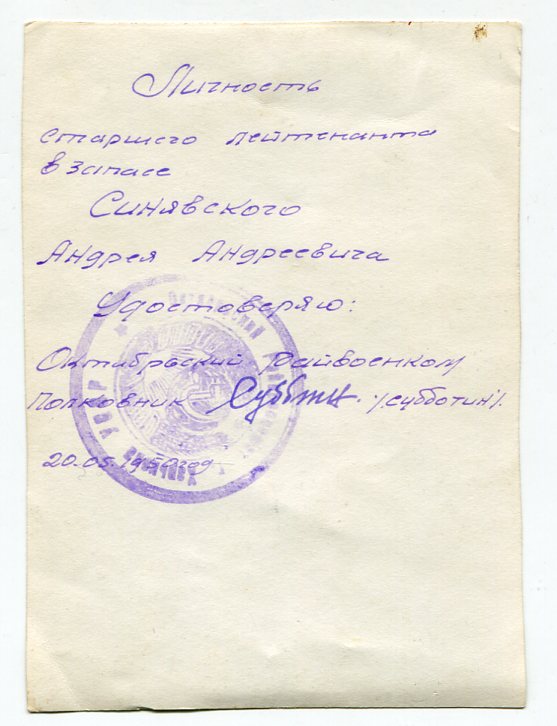 Личность
старшего лейтенанта
в запасе
Синявского
Андрея Андреевича
Удостоверяю:
Октябрьский Райвоенком
Полковник Субботин /Субботин/.
20.05.19